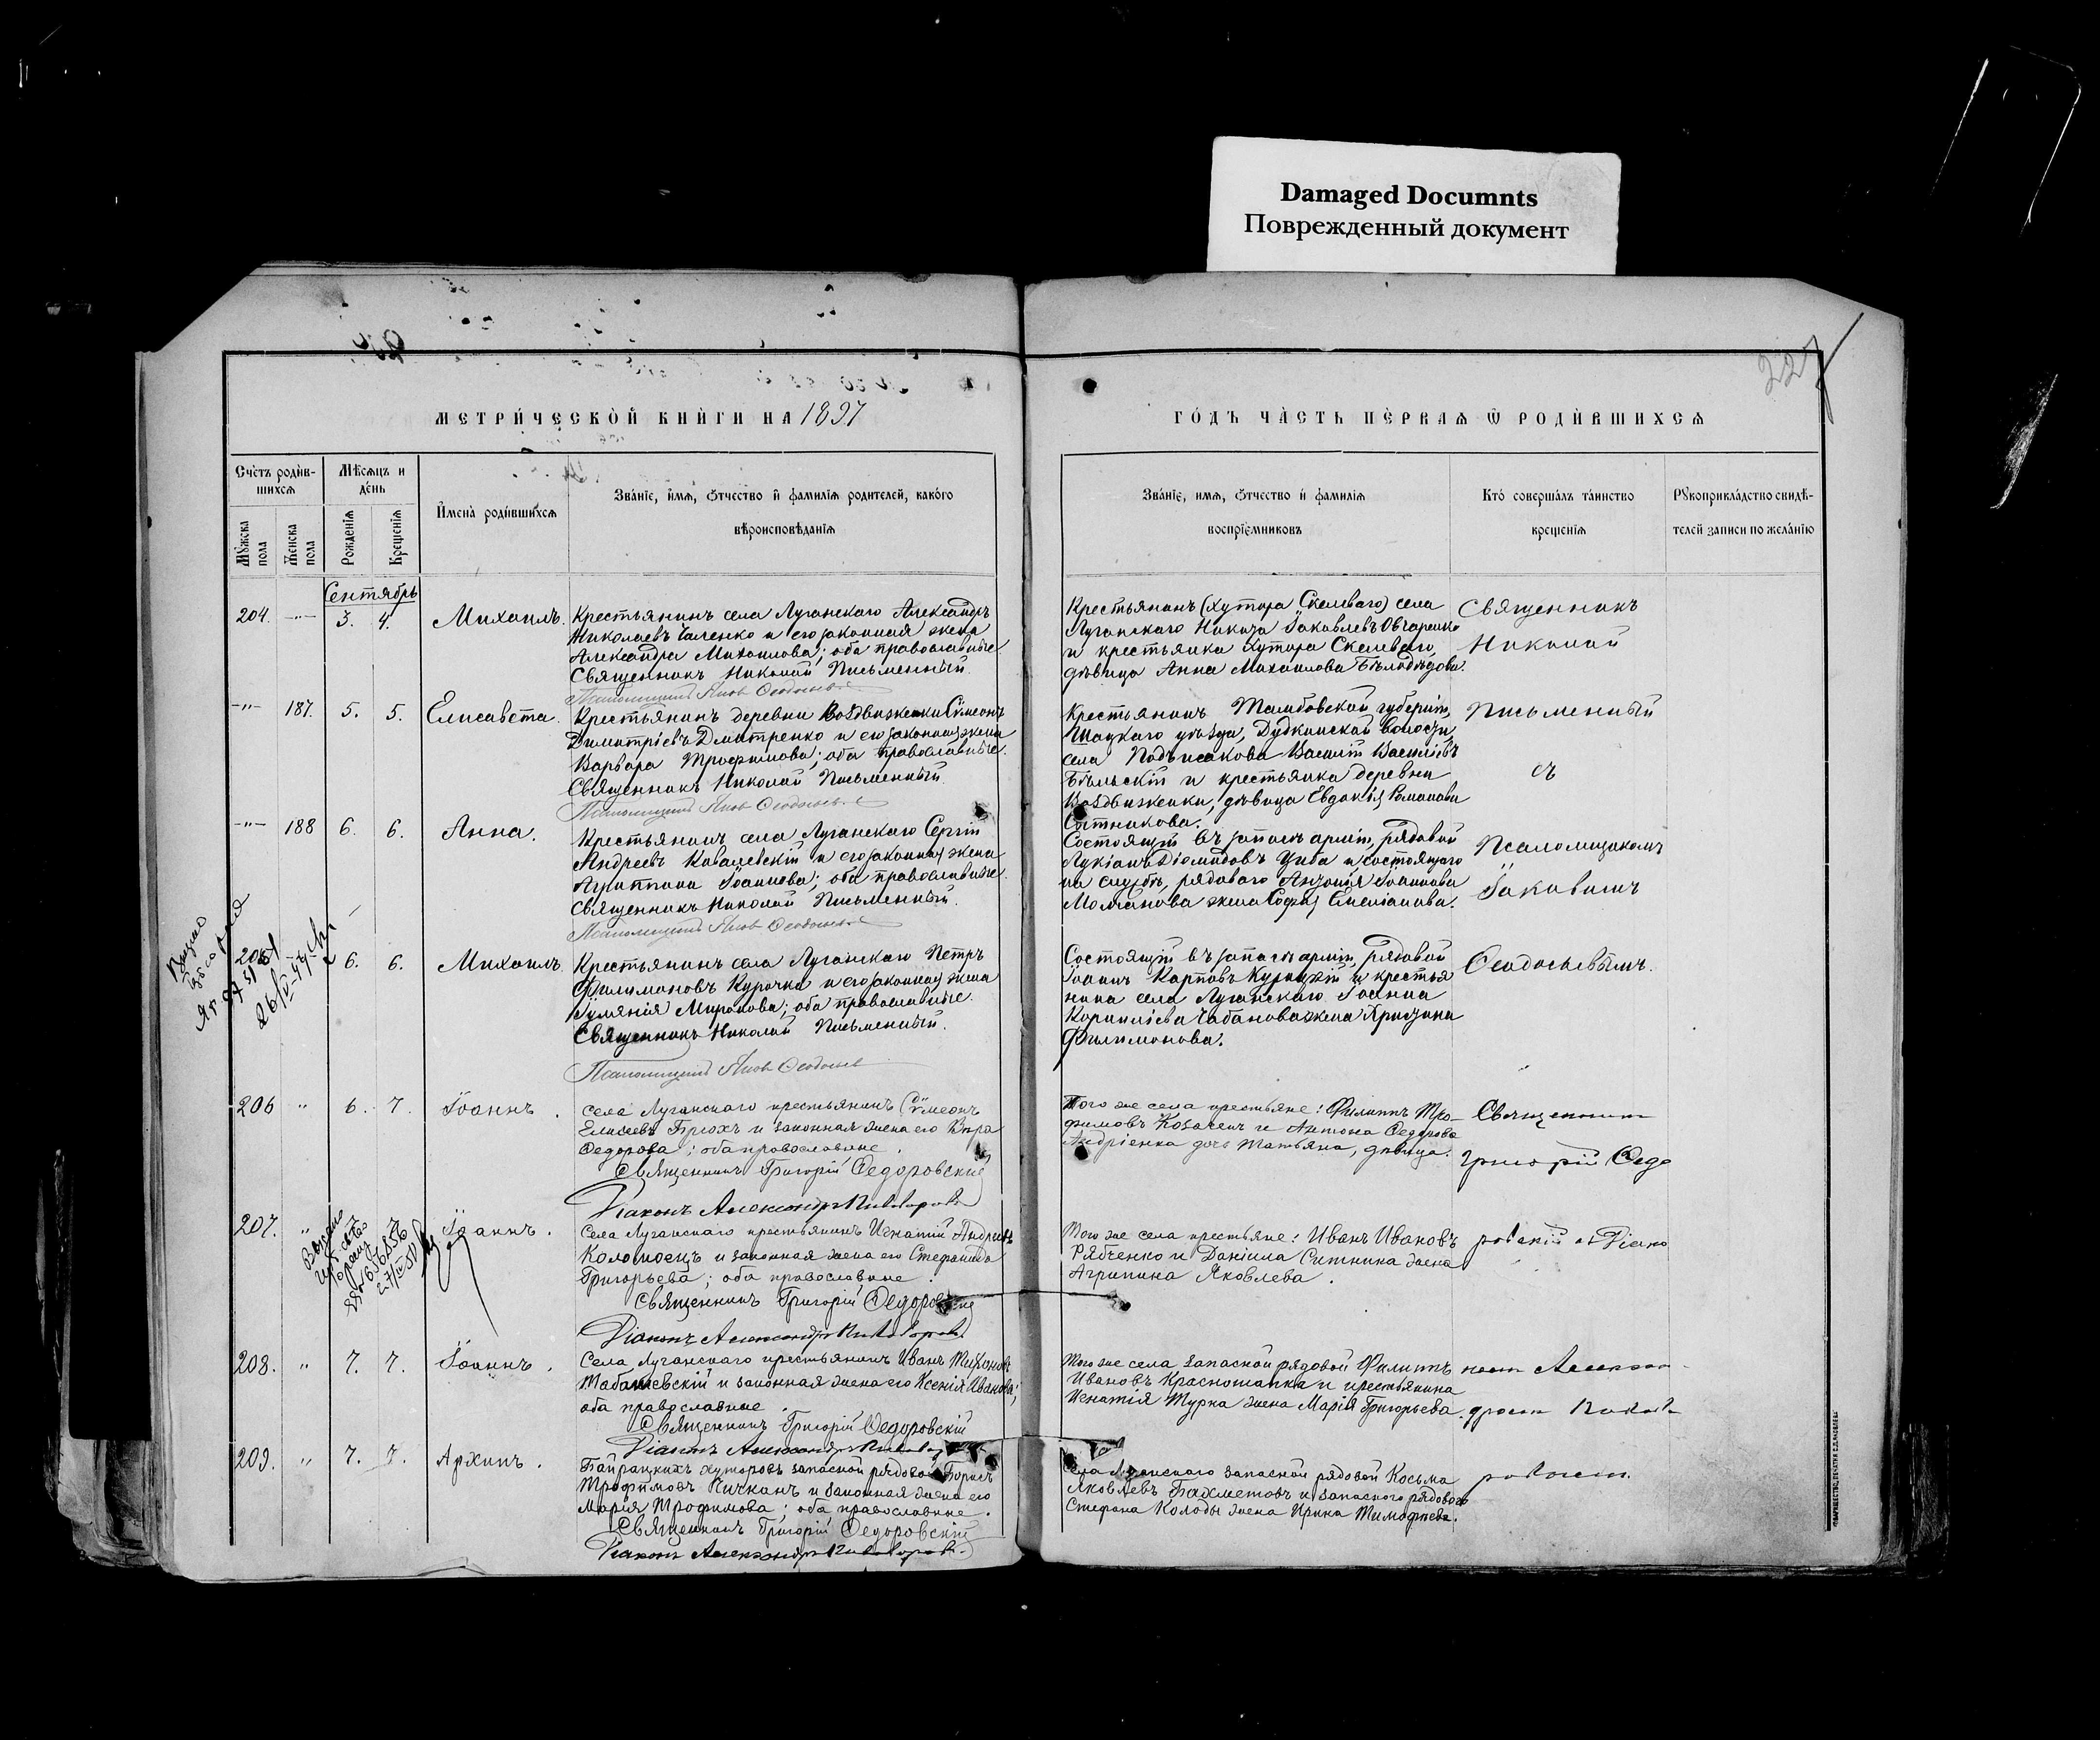 Damaged Documnts
Поврежденный документ
227
МЕТРИ́ЧЕСКОЙ КНИ́ГИ НА 1897
ГО́ДЪ ЧА́СТЬ ПЕ́РВАѦ Ѡ РОДИ́ВШИХСѦ
Счетъ роди́в-
шихсѧ
Мѣсѧцъ и
де́нь
Мꙋ́жеска
пола
Же́нска
пола
Рожде́нїѧ
Креще́нїѧ
И҆мена̀ роди́вшихсѧ
Зва́нїе, и҆́мѧ, ѻ҆́тчество и҆ фами́лїѧ роди́телей, како́го
вѣроисповѣ́данїѧ
Зва́нїе, и҆мѧ, ѻ҆́тчество и҆ фами́лїѧ
воспрїе́мниковъ
Кто́ соверша́лъ та́инство
креще́нїѧ
Рꙋкоприкла́дство свидѣ́-
телей записи по жела́нїю
Сентябрь
204. -"- 3. 4. Михаилъ.
Крестьянинъ села Луганскаго Александръ
Николаевъ Чаленко и его законная жена
Александра Михаилова; оба православные.
Священникъ Николай Письменный.
Псаломщикъ Яков Ѳеодосьев
Крестьянинъ (хутора Скелеваго) села
Луганскаго Никита Іаковлевъ Овчаренко
и крестьянка хутора Скелеваго,
дѣвица Анна Михаилова Бѣлодѣдова.
Священникъ
Николай
-"- 187. 5. 5. Елисавета.
Крестьянинъ деревни Воздвиженки Сѵмеонъ
Димитріевъ Дмитренко и его законная жена
Варвара Трофимова; оба православные.
Священникъ Николай Письменный.
Псаломщикъ Яков Ѳеодосьев
Крестьянинъ Тамбовской губерніи,
Шацкаго уѣзда, Дудкинской волости,
села Василій Васильевъ
Бѣльскій и крестьянка деревни
Воздвиженки, дѣвица Евдокія Романова
Сотникова.
Письменный
съ
-"- 188 6. 6. Анна.
Крестьянинъ села Луганскаго Сергій
Андреевъ Ковалевскій и его законная жена
Агриппина Іоаннова; оба православные.
Священникъ Николай Письменный.
Псаломщикъ Яков Ѳеодосьев
Состоящій въ запасѣ арміи, рядовой
Лукіанъ Діомидовъ Циба и состоящаго
на службѣ, рядоваго Антонія Іоаннова
Молчанова жена Софія Емельянова.
Псаломщикомъ
Іаковомъ
205 6. 6. Михаилъ.
Крестьянинъ села Луганскаго Петръ
Филимоновъ Курочка и его законная жена
Миронова; оба православные.
Священникъ Николай Письменный.
Псаломщикъ Яков Ѳеодосьев
Состоящій въ запасѣ арміи, рядовой
Іоаннъ Карповъ Курицкій и крестья
нина села Луганскаго Іоанна
Корниліева Чабанова жена Христина
Филимонова.
Ѳеодосьевымъ.
206 " 6. 7. Іоаннъ.
Села Луганскаго крестьянинъ Сѵмеонъ
Елисеевъ Брюхъ и законная жена его Вѣра
Ѳедорова; оба православные.
Священникъ Григорій Ѳедоровскій
Діаконъ Александръ Пивоваровъ
Того же села крестьяне: Филиппъ Тро-
фимовъ Козаченъ и Антона Ѳедорова
Андріенка дочь Татьяна, дѣвица.
Священникъ
Григорій Ѳедо
207. " Іоаннъ.
Села Луганскаго крестьянинъ Игнатій Андреевъ
Коломоецъ и законная жена его Стефанида
Григорьева; оба православные.
Священникъ Григорій Ѳедоровскій
Діаконъ Александръ Пивоваровъ
Того же села крестьяне: Иванъ Ивановъ
Рябченко и Даніила Ситника жена
Агрипина Яковлева.
ровскій съ Діако
208. " 7. 7. Іоаннъ.
Села Луганскаго крестьянинъ Иванъ Тихоновъ
и законная жена его Ксенія Иванова;
оба православные.
Священникъ Григорій Ѳедоровскій
Діаконъ Александръ Пивоваровъ
Того же села запасной рядовой Филиппъ
Ивановъ Красношапка и крестьянина
Игнатія Турка жена Марія Григорьева.
номъ Алексан-
дромъ Пивова-
209. " 7. 7. Архипъ.
Байрацкихъ хуторовъ запасной рядовой Борисъ
Трофимовъ Кичканъ и законная жена его
Марія Трофимова; оба православные.
Священникъ Григорій Ѳедоровскій
Діаконъ Александръ Пивоваровъ
Села Луганскаго запасной рядовой Косьма
Яковлевъ Бахметовъ и запаснаго рядового
Стефана Колоды жена Ирина Тимофеева.
ровымъ.